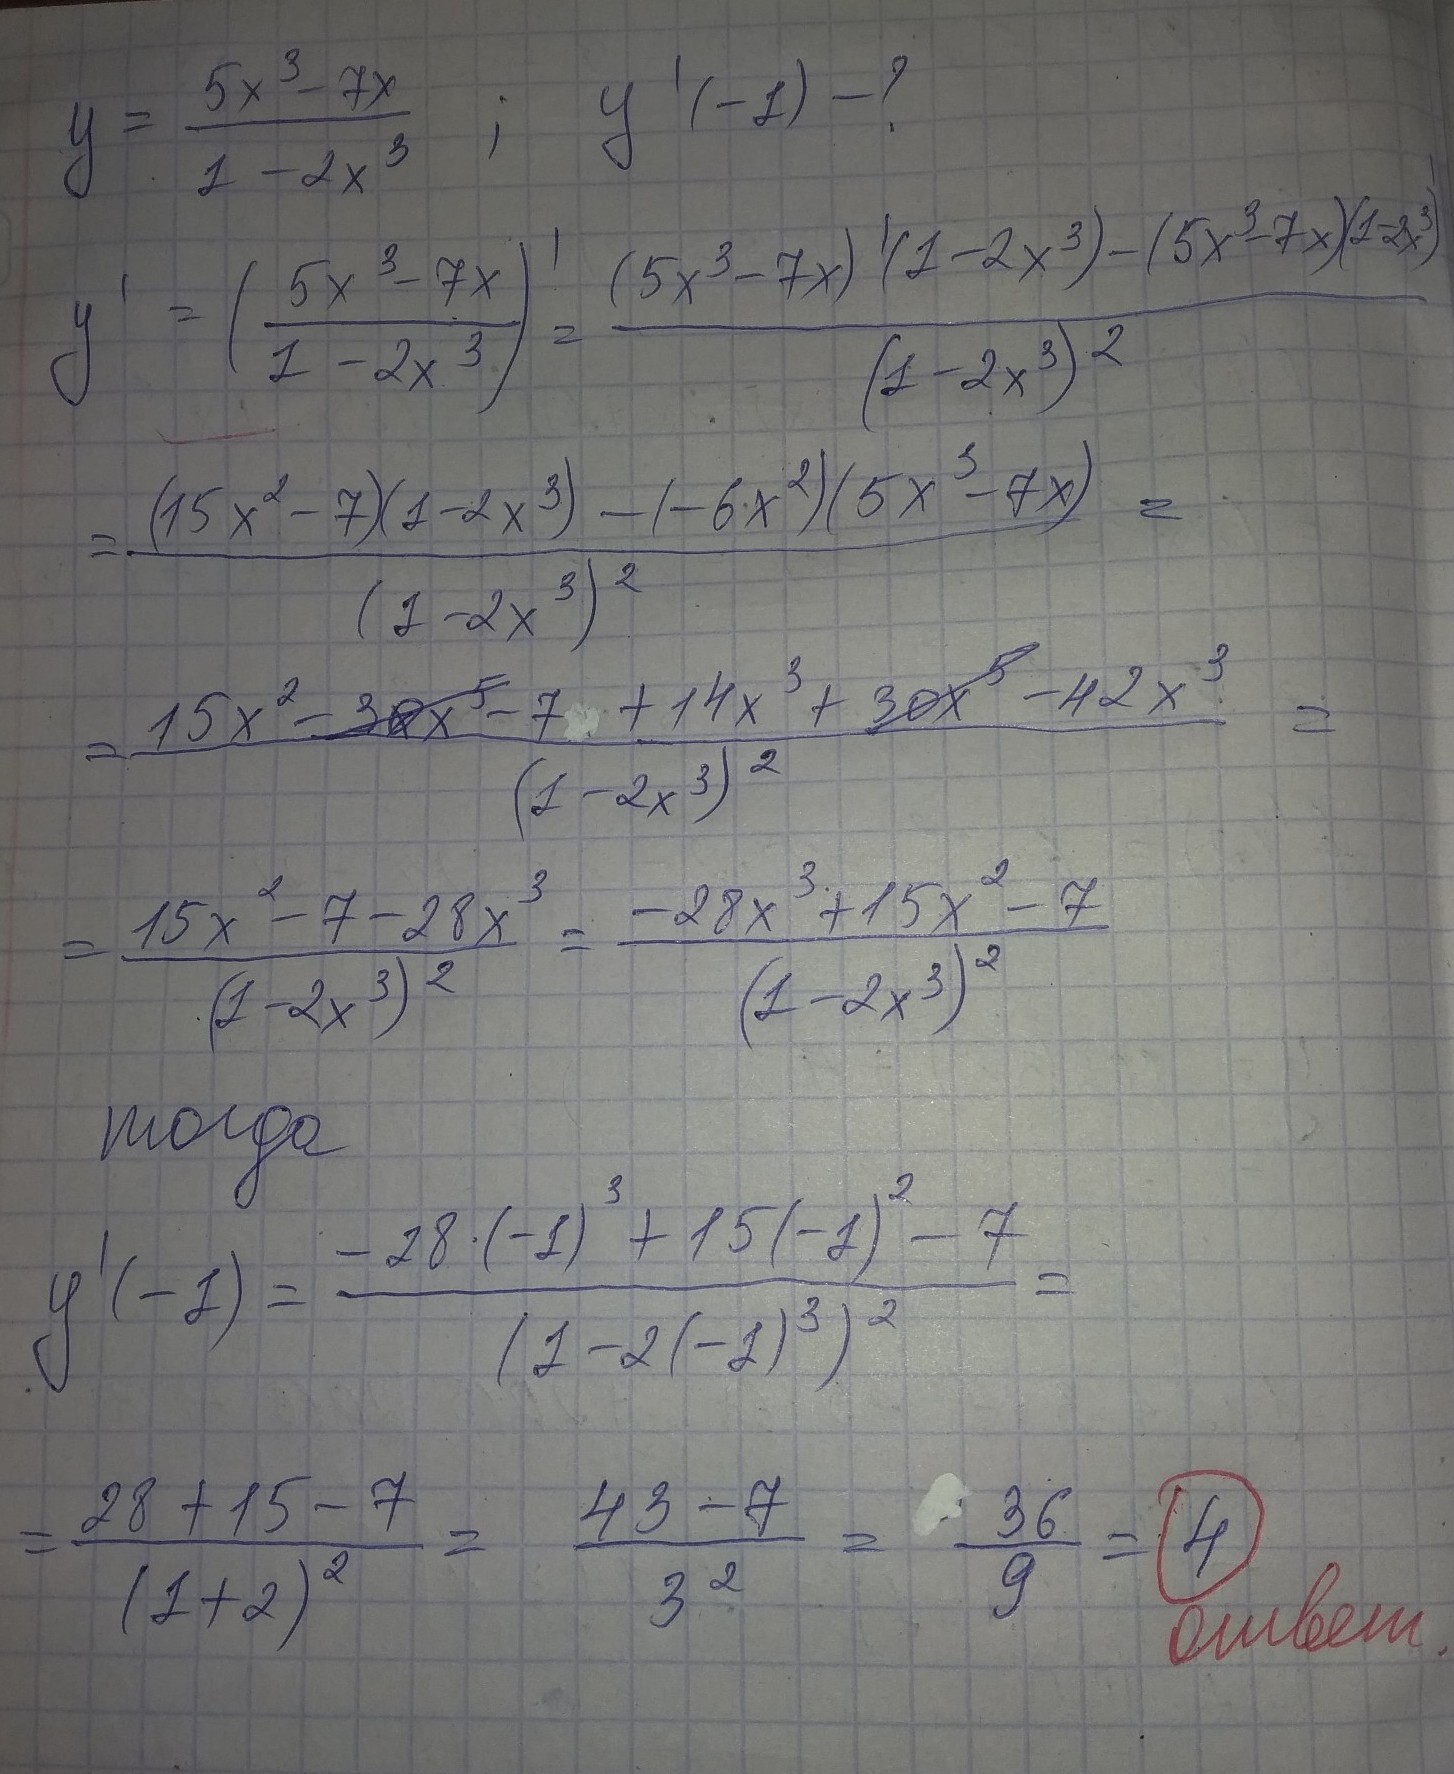 y = (5x³ - 7x)/(1 - 2x³) ; y'(-1) - ?
y' = ((5x³ - 7x)/(1 - 2x³))' = ((5x³ - 7x)'(1 - 2x³) - (5x³ - 7x)(1 - 2x³)')/(1 - 2x³)²
= ((15x² - 7)(1 - 2x³) - (-6x²)(5x³ - 7x))/(1 - 2x³)² =
= (15x² - 30x⁵ - 7 + 14x³ + 30x⁵ - 42x³)/(1 - 2x³)² =
= (15x² - 7 - 28x³)/(1 - 2x³)² = (-28x³ + 15x² - 7)/(1 - 2x³)²
тогда
y'(-1) = (-28·(-1)³ + 15(-1)² - 7)/(1 - 2(-1)³)² =
= (28 + 15 - 7)/(1 + 2)² = (43 - 7)/3² = 36/9 = 4
ответ.